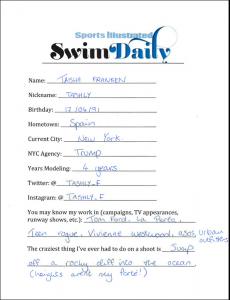 Sports Illustrated
Swim Daily
Name: TASHI FRANSEN
Nickname: TASHLY
Birthday: 17/04/91
Hometown: Spain
Current City: NEW YORK
NYC Agency: TRUMP
Years Modeling: 4 years
Twitter: @ TASHLY_F
Instagram: @ TASHLY_F
You may know my work in (campaigns, TV appearances,
runway shows, etc.): Tom Ford, La Perla,
Teen vogue, Vivienne westwood, asos, urban
outfitters
The craziest thing I've ever had to do on a shoot is Jump
off a rocky cliff into the ocean
(heights arent my forte!)